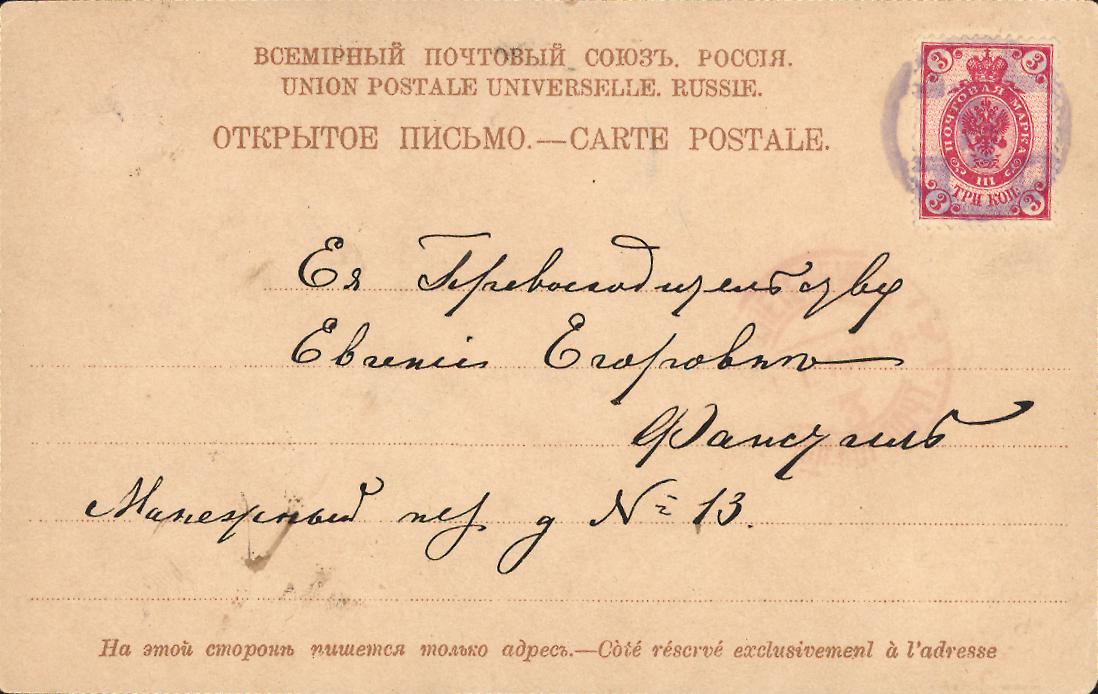 ВСЕМІРНЫЙ ПОЧТОВЫЙ СОЮЗЪ. РОССІЯ.
UNION POSTALE UNIVERSELLE. RUSSIE.
ОТКРЫТОЕ ПИСЬМО.—CARTE POSTALE.
3 3
ПОЧТОВАЯ МАРКА
III
ТРИ КОП.
3 3
Ея Превосходительству
Евгеніи Егоровнѣ
Манежный пер д № 13.
На этой сторонѣ пишется только адресъ.—Côté réservé exclusivement à l'adresse